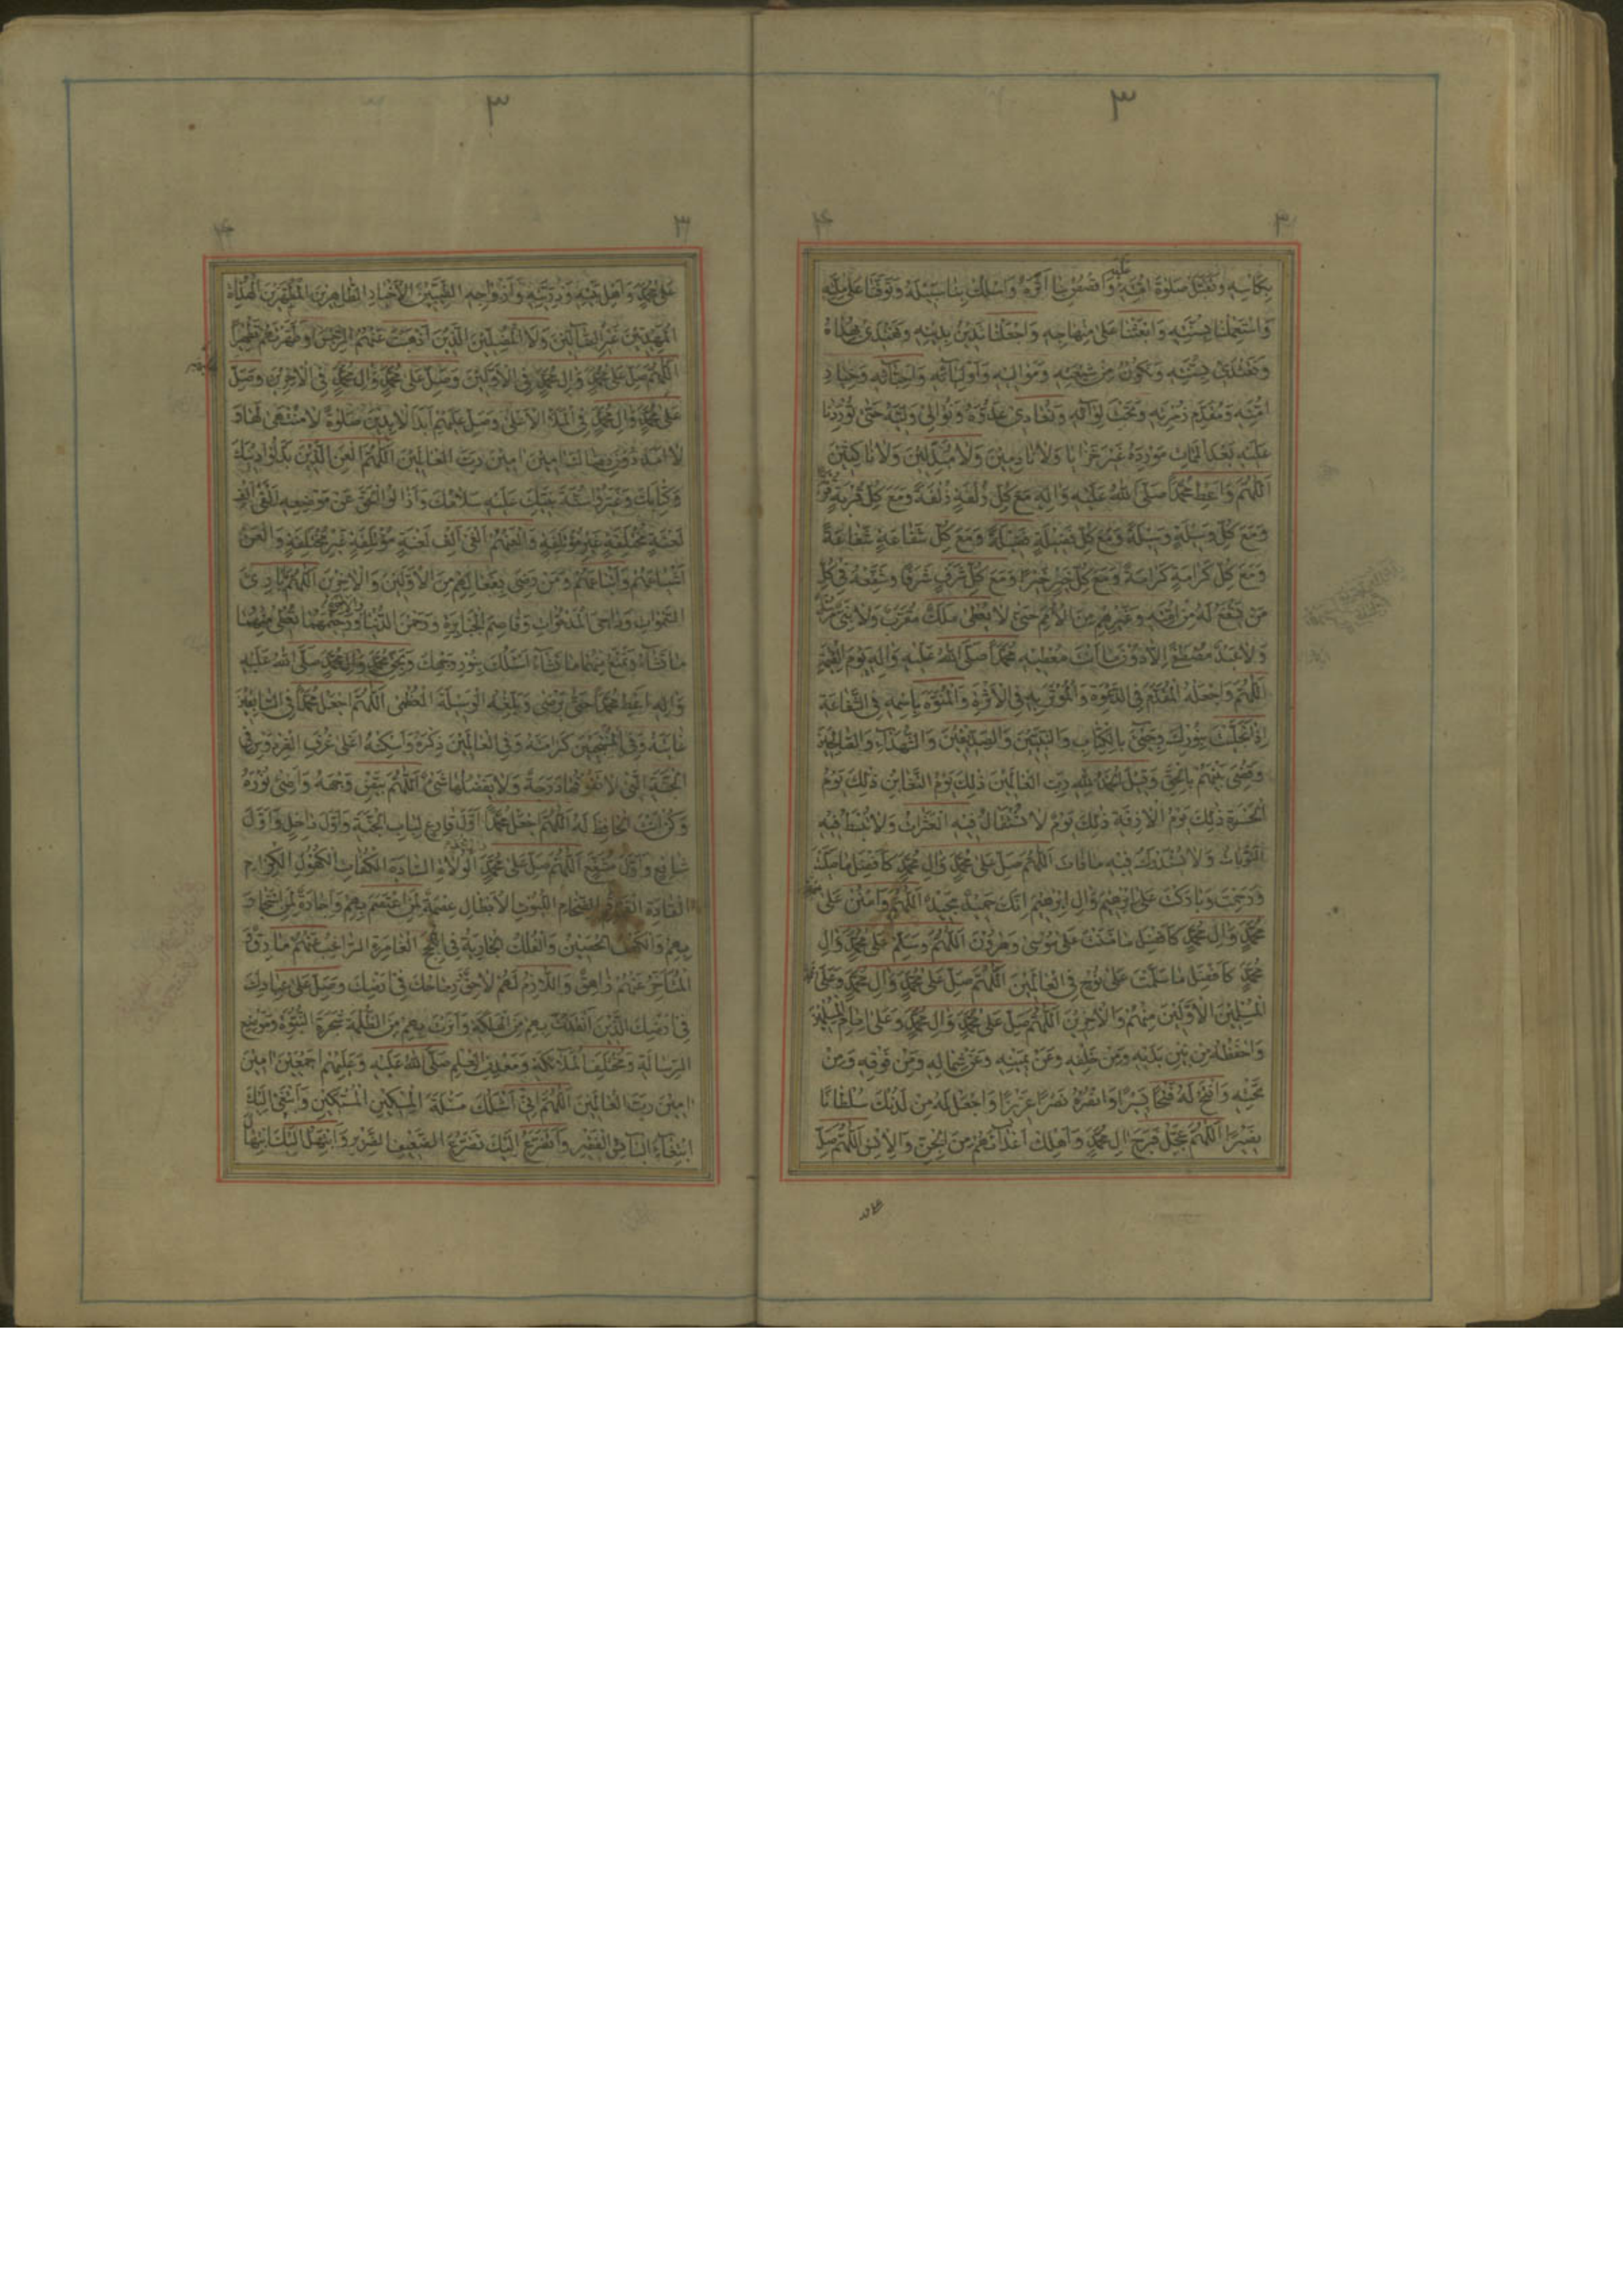 ٣
٤ ٣
بِكَأْسِهِ وَتَقَبَّلْ صَلٰوةَ اُمَّتِهِ عَلَيْهِ وَاقْصُصْ بِنَا اَثَرَهُ وَاسْلُكْ بِنَا سَبِيْلَهُ وَتَوَفَّنَا عَلٰى مِلَّتِهِ
وَاسْتَعْمِلْنَا بِسُنَّتِهِ وَابْعَثْنَا عَلٰى مِنْهَاجِهِ وَاجْعَلْنَا نَدِيْنُ بِدِيْنِهِ وَنَهْتَدِىْ بِهُدَاهُ
وَنَقْتَدِىْ بِسُنَّتِهِ وَنَكُوْنُ مِنْ شِيْعَتِهِ وَمَوَالِيْهِ وَاَوْلِيَائِهِ وَاَحِبَّائِهِ وَخِيَارِ
اُمَّتِهِ وَمُقَدَّمِ زُمْرَتِهِ وَتَحْتَ لِوَائِهِ وَنُعَادِىْ عَدُوَّهُ وَنُوَالِىْ وَلِيَّهُ حَتّٰى تُوْرِدَنَا
عَلَيْهِ بَعْدَ الْمَمَاتِ مَوْرِدَهُ غَيْرَ خَزَايَا وَلَا نَادِمِيْنَ وَلَا مُبَدِّلِيْنَ وَلَا نَاكِثِيْنَ
اَللّٰهُمَّ وَاَعْطِ مُحَمَّدًا صَلَّى اللهُ عَلَيْهِ وَاٰلِهِ مَعَ كُلِّ زُلْفَةٍ زُلْفَةً وَمَعَ كُلِّ قُرْبَةٍ قُرْبَةً
وَمَعَ كُلِّ وَسِيْلَةٍ وَسِيْلَةً وَمَعَ كُلِّ فَضِيْلَةٍ فَضِيْلَةً وَمَعَ كُلِّ شَفَاعَةٍ شَفَاعَةً
وَمَعَ كُلِّ كَرَامَةٍ كَرَامَةً وَمَعَ كُلِّ خَيْرٍ خَيْرًا وَمَعَ كُلِّ شَرَفٍ شَرَفًا وَشَفِّعْهُ فِىْ كُلِّ
مَنْ يَشْفَعُ لَهُ مِنْ اُمَّتِهِ وَغَيْرِهِمْ مِنَ الْاُمَمِ حَتّٰى لَا يُعْطٰى مَلَكٌ مُقَرَّبٌ وَلَا نَبِىٌّ مُرْسَلٌ
وَلَا عَبْدٌ مُصْطَفًى اِلَّا دُوْنَ مَا اَنْتَ مُعْطِيْهِ مُحَمَّدًا صَلَّى اللهُ عَلَيْهِ وَاٰلِهِ يَوْمَ الْقِيٰمَةِ
اَللّٰهُمَّ وَاجْعَلْهُ الْمُقَدَّمَ فِى الدَّعْوَةِ وَالْمُؤْثَرَ بِهِ فِى الْاَثَرَةِ وَالْمُنَوَّهَ بِاسْمِهِ فِى الشَّفَاعَةِ
اِذَا تَجَلَّيْتَ بِنُوْرِكَ وَجِىْءَ بِالْكِتَابِ وَالنَّبِيِّيْنَ وَالصِّدِّيْقِيْنَ وَالشُّهَدَاءِ وَالصَّالِحِيْنَ
وَقُضِىَ بَيْنَهُمْ بِالْحَقِّ وَقِيْلَ الْحَمْدُ لِلّٰهِ رَبِّ الْعَالَمِيْنَ ذٰلِكَ يَوْمُ التَّغَابُنِ ذٰلِكَ يَوْمُ
الْحَسْرَةِ ذٰلِكَ يَوْمُ الْاٰزِفَةِ ذٰلِكَ يَوْمٌ لَا تُسْتَقَالُ فِيْهِ الْعَثَرَاتُ وَلَا تُبْسَطُ فِيْهِ
التَّوْبَاتُ وَلَا يُسْتَدْرَكُ فِيْهِ مَا فَاتَ اَللّٰهُمَّ صَلِّ عَلٰى مُحَمَّدٍ وَاٰلِ مُحَمَّدٍ كَاَفْضَلِ مَا صَلَّيْتَ
وَرَحِمْتَ وَبَارَكْتَ عَلٰى اِبْرٰهِيْمَ وَاٰلِ اِبْرٰهِيْمَ اِنَّكَ حَمِيْدٌ مَجِيْدٌ اَللّٰهُمَّ وَامْنُنْ عَلٰى
مُحَمَّدٍ وَاٰلِ مُحَمَّدٍ كَاَفْضَلِ مَا مَنَنْتَ عَلٰى مُوْسٰى وَهٰرُوْنَ اَللّٰهُمَّ وَسَلِّمْ عَلٰى مُحَمَّدٍ وَاٰلِ
مُحَمَّدٍ كَاَفْضَلِ مَا سَلَّمْتَ عَلٰى نُوْحٍ فِى الْعَالَمِيْنَ اَللّٰهُمَّ صَلِّ عَلٰى مُحَمَّدٍ وَاٰلِ مُحَمَّدٍ وَعَلٰى
الْمُسْلِمِيْنَ الْاَوَّلِيْنَ مِنْهُمْ وَالْاٰخِرِيْنَ اَللّٰهُمَّ صَلِّ عَلٰى مُحَمَّدٍ وَاٰلِ مُحَمَّدٍ وَعَلٰى اِمَامِ الْمُسْلِمِيْنَ
وَاحْفَظْهُ مِنْ بَيْنِ يَدَيْهِ وَمِنْ خَلْفِهِ وَعَنْ يَمِيْنِهِ وَعَنْ شِمَالِهِ وَمِنْ فَوْقِهِ وَمِنْ
تَحْتِهِ وَافْتَحْ لَهُ فَتْحًا يَسِيْرًا وَانْصُرْهُ نَصْرًا عَزِيْزًا وَاجْعَلْ لَهُ مِنْ لَدُنْكَ سُلْطَانًا
نَصِيْرًا اَللّٰهُمَّ عَجِّلْ فَرَجَ اٰلِ مُحَمَّدٍ وَاَهْلِكْ اَعْدَائَهُمْ مِنَ الْجِنِّ وَالْاِنْسِ اَللّٰهُمَّ صَلِّ
٣
٤ ٣
عَلٰى مُحَمَّدٍ وَاَهْلِ بَيْتِهِ وَذُرِّيَّتِهِ وَاَزْوَاجِهِ الطَّيِّبِيْنَ الْاَخْيَارِ الطَّاهِرِيْنَ الْمُطَهَّرِيْنَ الْهُدَاةِ
الْمُهْتَدِيْنَ غَيْرِ الضَّالِّيْنَ وَلَا الْمُضِلِّيْنَ الَّذِيْنَ اَذْهَبْتَ عَنْهُمُ الرِّجْسَ وَطَهَّرْتَهُمْ تَطْهِيْرًا
اَللّٰهُمَّ صَلِّ عَلٰى مُحَمَّدٍ وَاٰلِ مُحَمَّدٍ فِى الْاَوَّلِيْنَ وَصَلِّ عَلٰى مُحَمَّدٍ وَاٰلِ مُحَمَّدٍ فِى الْاٰخِرِيْنَ وَصَلِّ
عَلٰى مُحَمَّدٍ وَاٰلِ مُحَمَّدٍ فِى الْمَلَاِ الْاَعْلٰى وَصَلِّ عَلَيْهِمْ اَبَدَ الْاٰبِدِيْنَ صَلٰوةً لَا مُنْتَهٰى لَهَا وَ
لَا اَمَدَ دُوْنَ رِضَاكَ اٰمِيْنَ اٰمِيْنَ رَبَّ الْعَالَمِيْنَ اَللّٰهُمَّ الْعَنِ الَّذِيْنَ بَدَّلُوْا دِيْنَكَ
وَكِتَابَكَ وَغَيَّرُوْا سُنَّةَ نَبِيِّكَ عَلَيْهِ سَلَامُكَ وَاَزَالُوا الْحَقَّ عَنْ مَوْضِعِهِ اَلْفَىْ اَلْفِ
لَعْنَةٍ مُخْتَلِفَةٍ غَيْرِ مُؤْتَلِفَةٍ وَالْعَنْهُمْ اَلْفَىْ اَلْفِ لَعْنَةٍ مُؤْتَلِفَةٍ غَيْرِ مُخْتَلِفَةٍ وَالْعَنْ
اَشْيَاعَهُمْ وَاَتْبَاعَهُمْ وَمَنْ رَضِىَ بِفِعَالِهِمْ مِنَ الْاَوَّلِيْنَ وَالْاٰخِرِيْنَ اَللّٰهُمَّ يَا بَارِئَ
السَّمٰوَاتِ وَدَاحِىَ الْمَدْحُوَّاتِ وَقَاصِمَ الْجَبَابِرَةِ وَرَحْمٰنَ الدُّنْيَا وَالْاٰخِرَةِ وَرَحِيْمَهُمَا تُعْطِىْ مِنْهُمَا
مَا تَشَاءُ وَتَمْنَعُ مِنْهُمَا مَا تَشَاءُ اَسْئَلُكَ بِنُوْرِ وَجْهِكَ وَبِحَقِّ مُحَمَّدٍ وَاٰلِ مُحَمَّدٍ صَلَّى اللهُ عَلَيْهِ
وَاٰلِهِ اَعْطِ مُحَمَّدًا حَتّٰى يَرْضٰى وَبَلِّغْهُ الْوَسِيْلَةَ الْعُظْمٰى اَللّٰهُمَّ اجْعَلْ مُحَمَّدًا فِى السَّابِقِيْنَ
غَايَتَهُ وَفِى الْمُنْتَجَبِيْنَ كَرَامَتَهُ وَفِى الْعَالَمِيْنَ ذِكْرَهُ وَاَسْكِنْهُ اَعْلٰى غُرَفِ الْفِرْدَوْسِ فِى
الْجَنَّةِ الَّتِىْ لَا تَفُوْقُهَا دَرَجَةٌ وَلَا يَفْضُلُهَا شَىْءٌ اَللّٰهُمَّ بَيِّضْ وَجْهَهُ وَاَضِئْ نُوْرَهُ
وَكُنْ اَنْتَ الْحَافِظَ لَهُ اَللّٰهُمَّ اجْعَلْ مُحَمَّدًا اَوَّلَ قَارِعٍ لِبَابِ الْجَنَّةِ وَاَوَّلَ دَاخِلٍ وَاَوَّلَ
شَافِعٍ وَاَوَّلَ مُشَفَّعٍ اَللّٰهُمَّ صَلِّ عَلٰى مُحَمَّدٍ الْوُلَاةِ السَّادَةِ الْكُفَاةِ الْكُهُوْلِ الْكِرَامِ
الْقَادَةِ الْقَمَاقِمِ الضِّخَامِ اللُّيُوْثِ الْاَبْطَالِ عِصْمَةً لِمَنِ اعْتَصَمَ بِهِمْ وَاِجَارَةً لِمَنِ اسْتَجَارَ
بِهِمْ وَالْكَهْفِ الْحَصِيْنِ وَالْفُلْكِ الْجَارِيَةِ فِى اللُّجَجِ الْغَامِرَةِ الرَّاغِبُ عَنْهُمْ مَارِقٌ وَ
الْمُتَاَخِّرُ عَنْهُمْ زَاهِقٌ وَاللَّازِمُ لَهُمْ لَاحِقٌ رِمَاحُكَ فِىْ اَرْضِكَ وَصَلِّ عَلٰى عِبَادِكَ
فِىْ اَرْضِكَ الَّذِيْنَ اَنْقَذْتَ بِهِمْ مِنَ الْهَلَكَةِ وَاَنَرْتَ بِهِمْ مِنَ الظُّلْمَةِ شَجَرَةِ النُّبُوَّةِ وَمَوْضِعِ
الرِّسَالَةِ وَمُخْتَلَفِ الْمَلٰئِكَةِ وَمَعْدِنِ الْعِلْمِ صَلَّى اللهُ عَلَيْهِ وَعَلَيْهِمْ اَجْمَعِيْنَ اٰمِيْنَ
اٰمِيْنَ رَبَّ الْعَالَمِيْنَ اَللّٰهُمَّ اِنِّىْ اَسْئَلُكَ مَسْئَلَةَ الْمِسْكِيْنِ الْمُسْتَكِيْنِ وَاَبْتَغِىْ اِلَيْكَ
ابْتِغَاءَ الْبَائِسِ الْفَقِيْرِ وَاَتَضَرَّعُ اِلَيْكَ تَضَرُّعَ الضَّعِيْفِ الضَّرِيْرِ وَاَبْتَهِلُ اِلَيْكَ ابْتِهَالَ